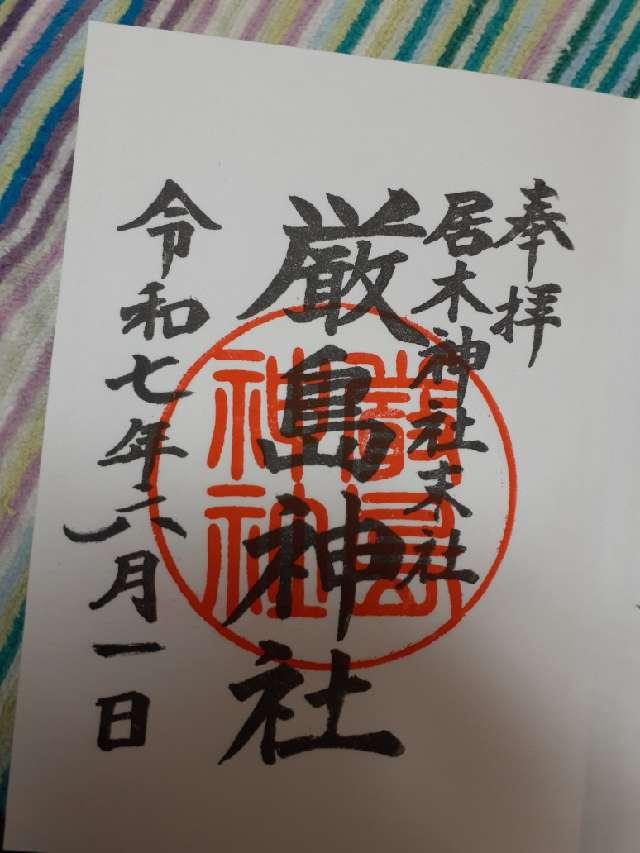 奉拝
居木神社末社
厳島神社
厳島神社
令和七年六月一日